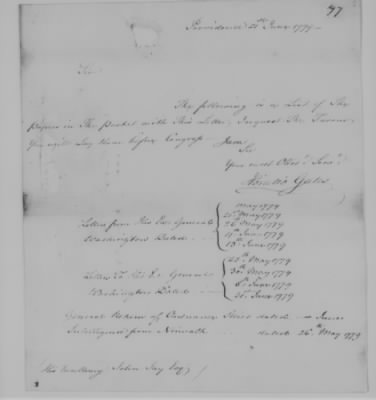 77
Providence 21st June 1779
Sir
The following is a List of The
papers in The packet with This Letter, I request The Favour
You will Lay them before Congress. I am
Sir
Your most Obet. Servt.
Horatio Gates
Letters from His Ex: General
Washington Dated
May 1779
May 1779
May 1779
June 1779
June 1779
Letters To His Ex: General
Washington Dated
May 1779
30th May 1779
June 1779
June 1779
General Return of Ordnance Stores dated June
Intelligence from Norwalk dated 26th May 1779
His Excellency John Jay Esq;